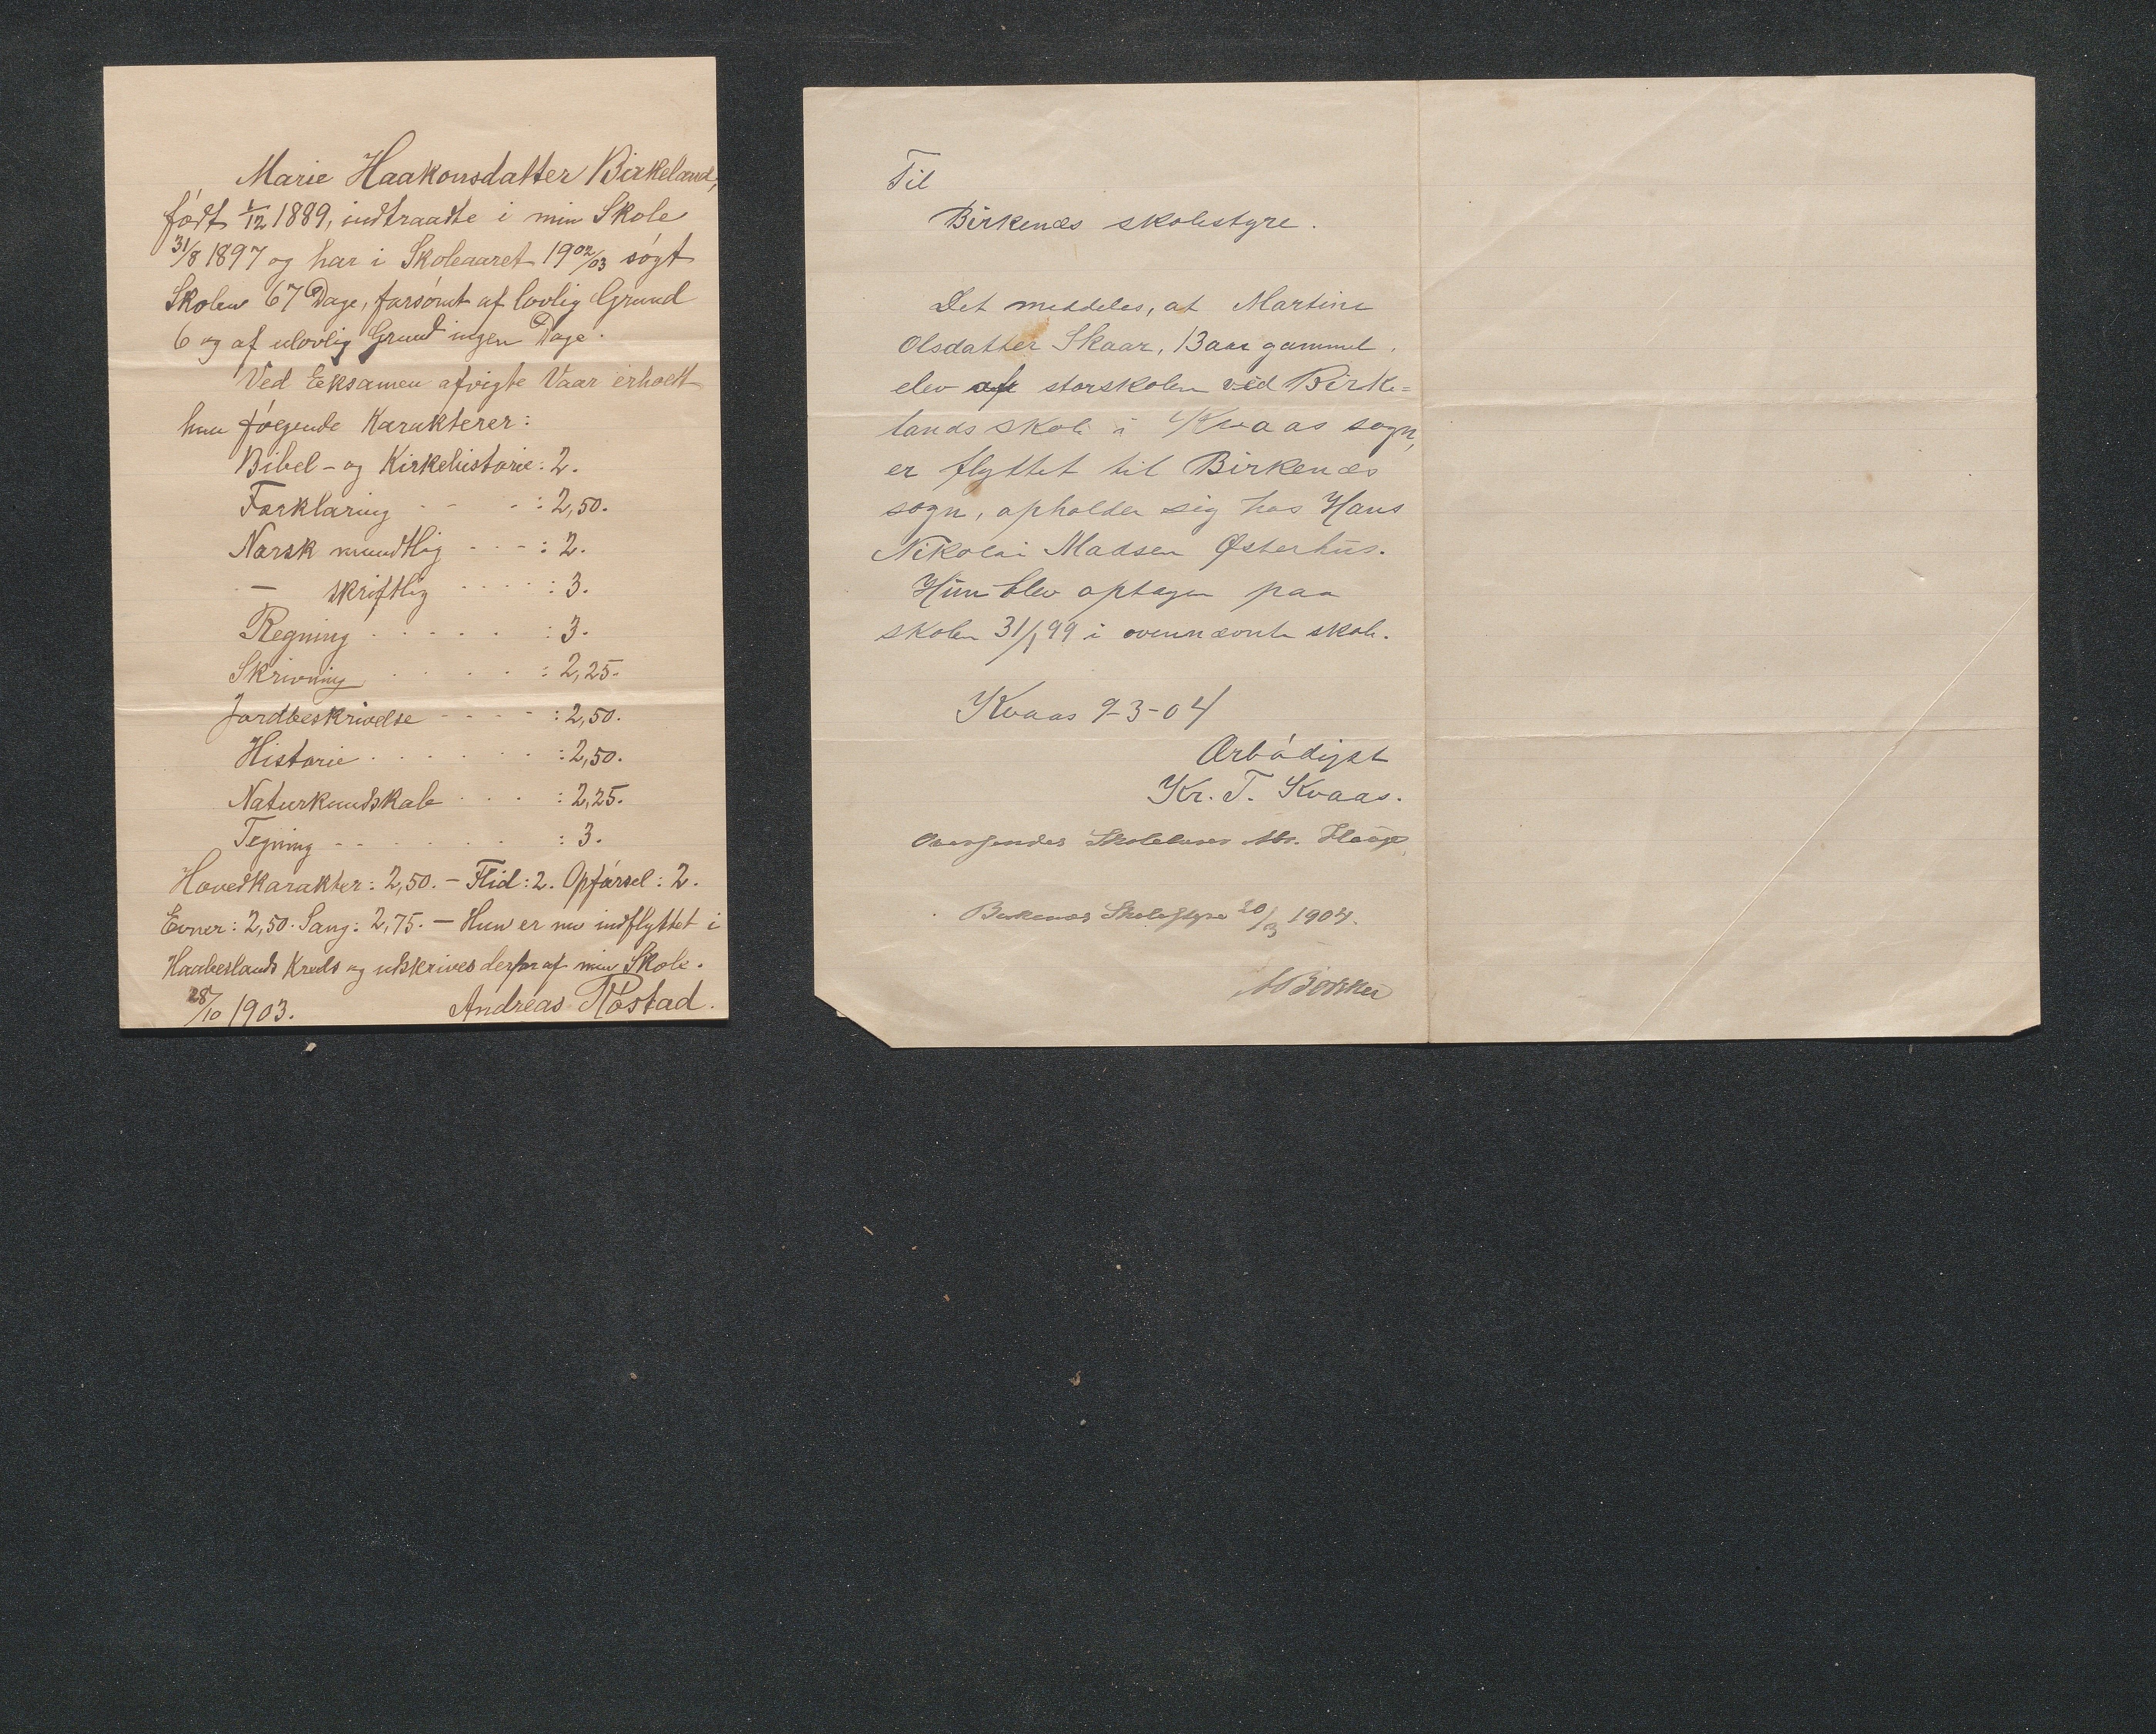 Marie Haakonsdatter Birkeland,
født 1/12 1889, indtraadte i min Skole
31/8 1897 og har i Skoleaaret 19 02/03 søgt
Skolen 67 Dage, forsømt af lovlig Grund
6 og af ulovlig Grund ingen Dage.
Ved Eksamen afvigte Vaar erholdt
hun følgende Karakterer:
Bibel- og Kirkehistorie: 2.
Forklaring - - - : 2,50.
Norsk mundtlig - - - : 2.
— skriftlig . . . . . : 3.
Regning . . . . . : 3.
Skrivning . . . . . : 2,25.
Jordbeskrivelse - - - - : 2,50.
Historie . . . . . . : 2,50.
Naturkundskab . . . : 2,25.
Tegning - - . . . . : 3.
Hovedkarakter: 2,50. — Flid: 2. Opførsel: 2.
Evner: 2,50. Sang: 2,75. — Hun er nu indflyttet i
Haabeslands Kreds og udskrives derfor af min Skole.
28/10 1903. Andreas Røstad.
Til
Birkenæs skolestyre.
Det meddeles, at Martine
Olsdatter Skaar, 13 aar gammel,
elev af storskolen ved Birke=
lands skole i Kvaas sogn,
er flyttet til Birkenæs
sogn, opholder sig hos Hans
Nikolai Madsen Østerhus.
Hun blev optagen paa
skolen 31/1 99 i ovennævnte skole.
Kvaas 9-3-04
Ærbødigst
Kr. T. Kvaas.
Oversendes Skolelærer Hr.
Birkenæs Skolestyre 20/3 1904.